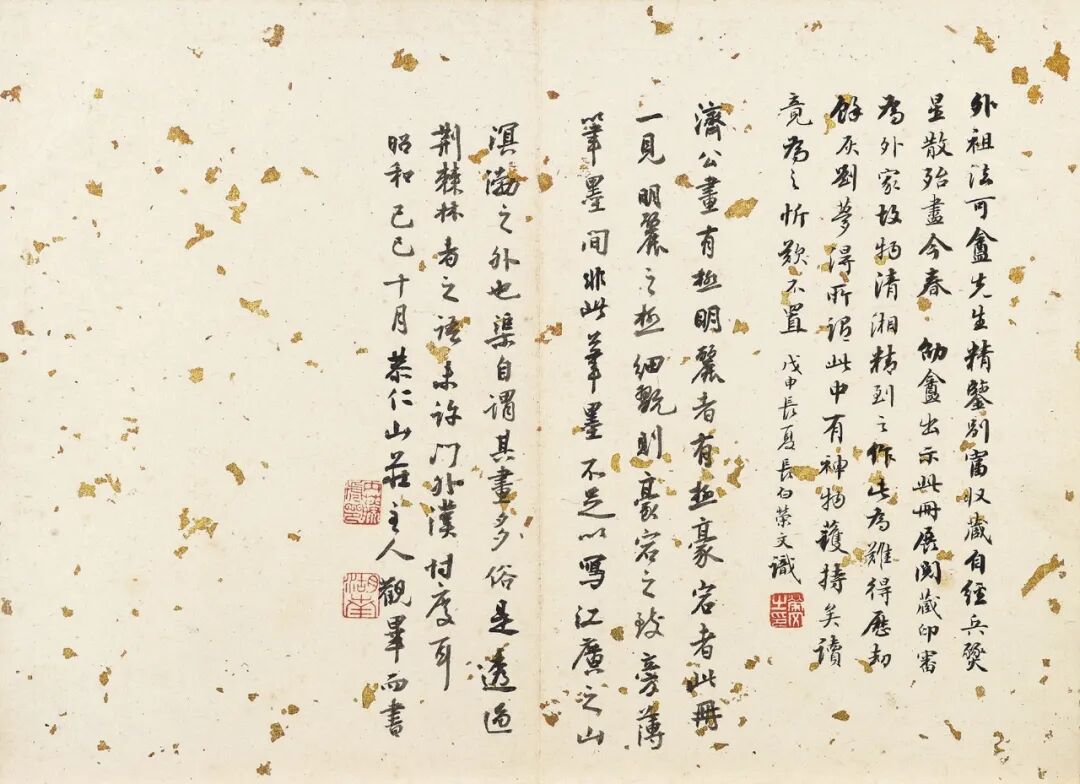 外祖法可盦先生精鑒別富收藏自經兵燹
星散殆盡今春劬盦出示此冊展閱藏印審
為外家故物清湘精到之作此為難得歷劫
餘灰劉夢得所謂此中有神物護持矣讀
竟為之忻歎不置 戊申長夏長白榮文識
濟公畫有極明麗者有極豪宕者此冊
一見明麗之極細翫則豪宕之致旁薄
筆墨間非此筆墨不足以寫江廣之山
溟渤之外也渠自謂其畫多俗是透過
荆棘林者之語未許門外漢忖度耳
昭和己巳十月恭仁山莊主人觀畢而書